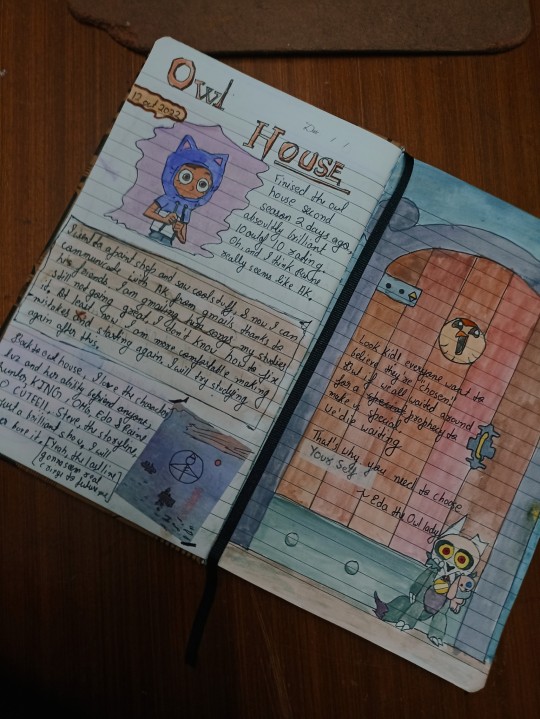 Owl
House
12 oct 2022
Finised the owl
house second
season 2 days ago,
absoultly brilliant
10 out of 10 rating.
Oh, and I think Raine
really seems like AK.
I went to a paint shop and saw cool stuff, & now I can
communicate with AK from gmails thanks to
his friends. I am
still not going great. I don't know how to fix
it. At least now I am more comfortable making
mistakes and starting again. I will try studying
again after this.
Back to owl house, I love the characters
luz and her ability befriend anyone,
Hunter, KING!, EDA, Eda & Raine
SO CUTE!!, Steve the storyline
just a brilliant show, I will
Look kid, everyone want to
believe they're 'chosen'.
But if we all waited around
for a prophecy to
make us special
We'd die waiting
That's why you need to choose
Your Self !
~ Eda the Owl lady